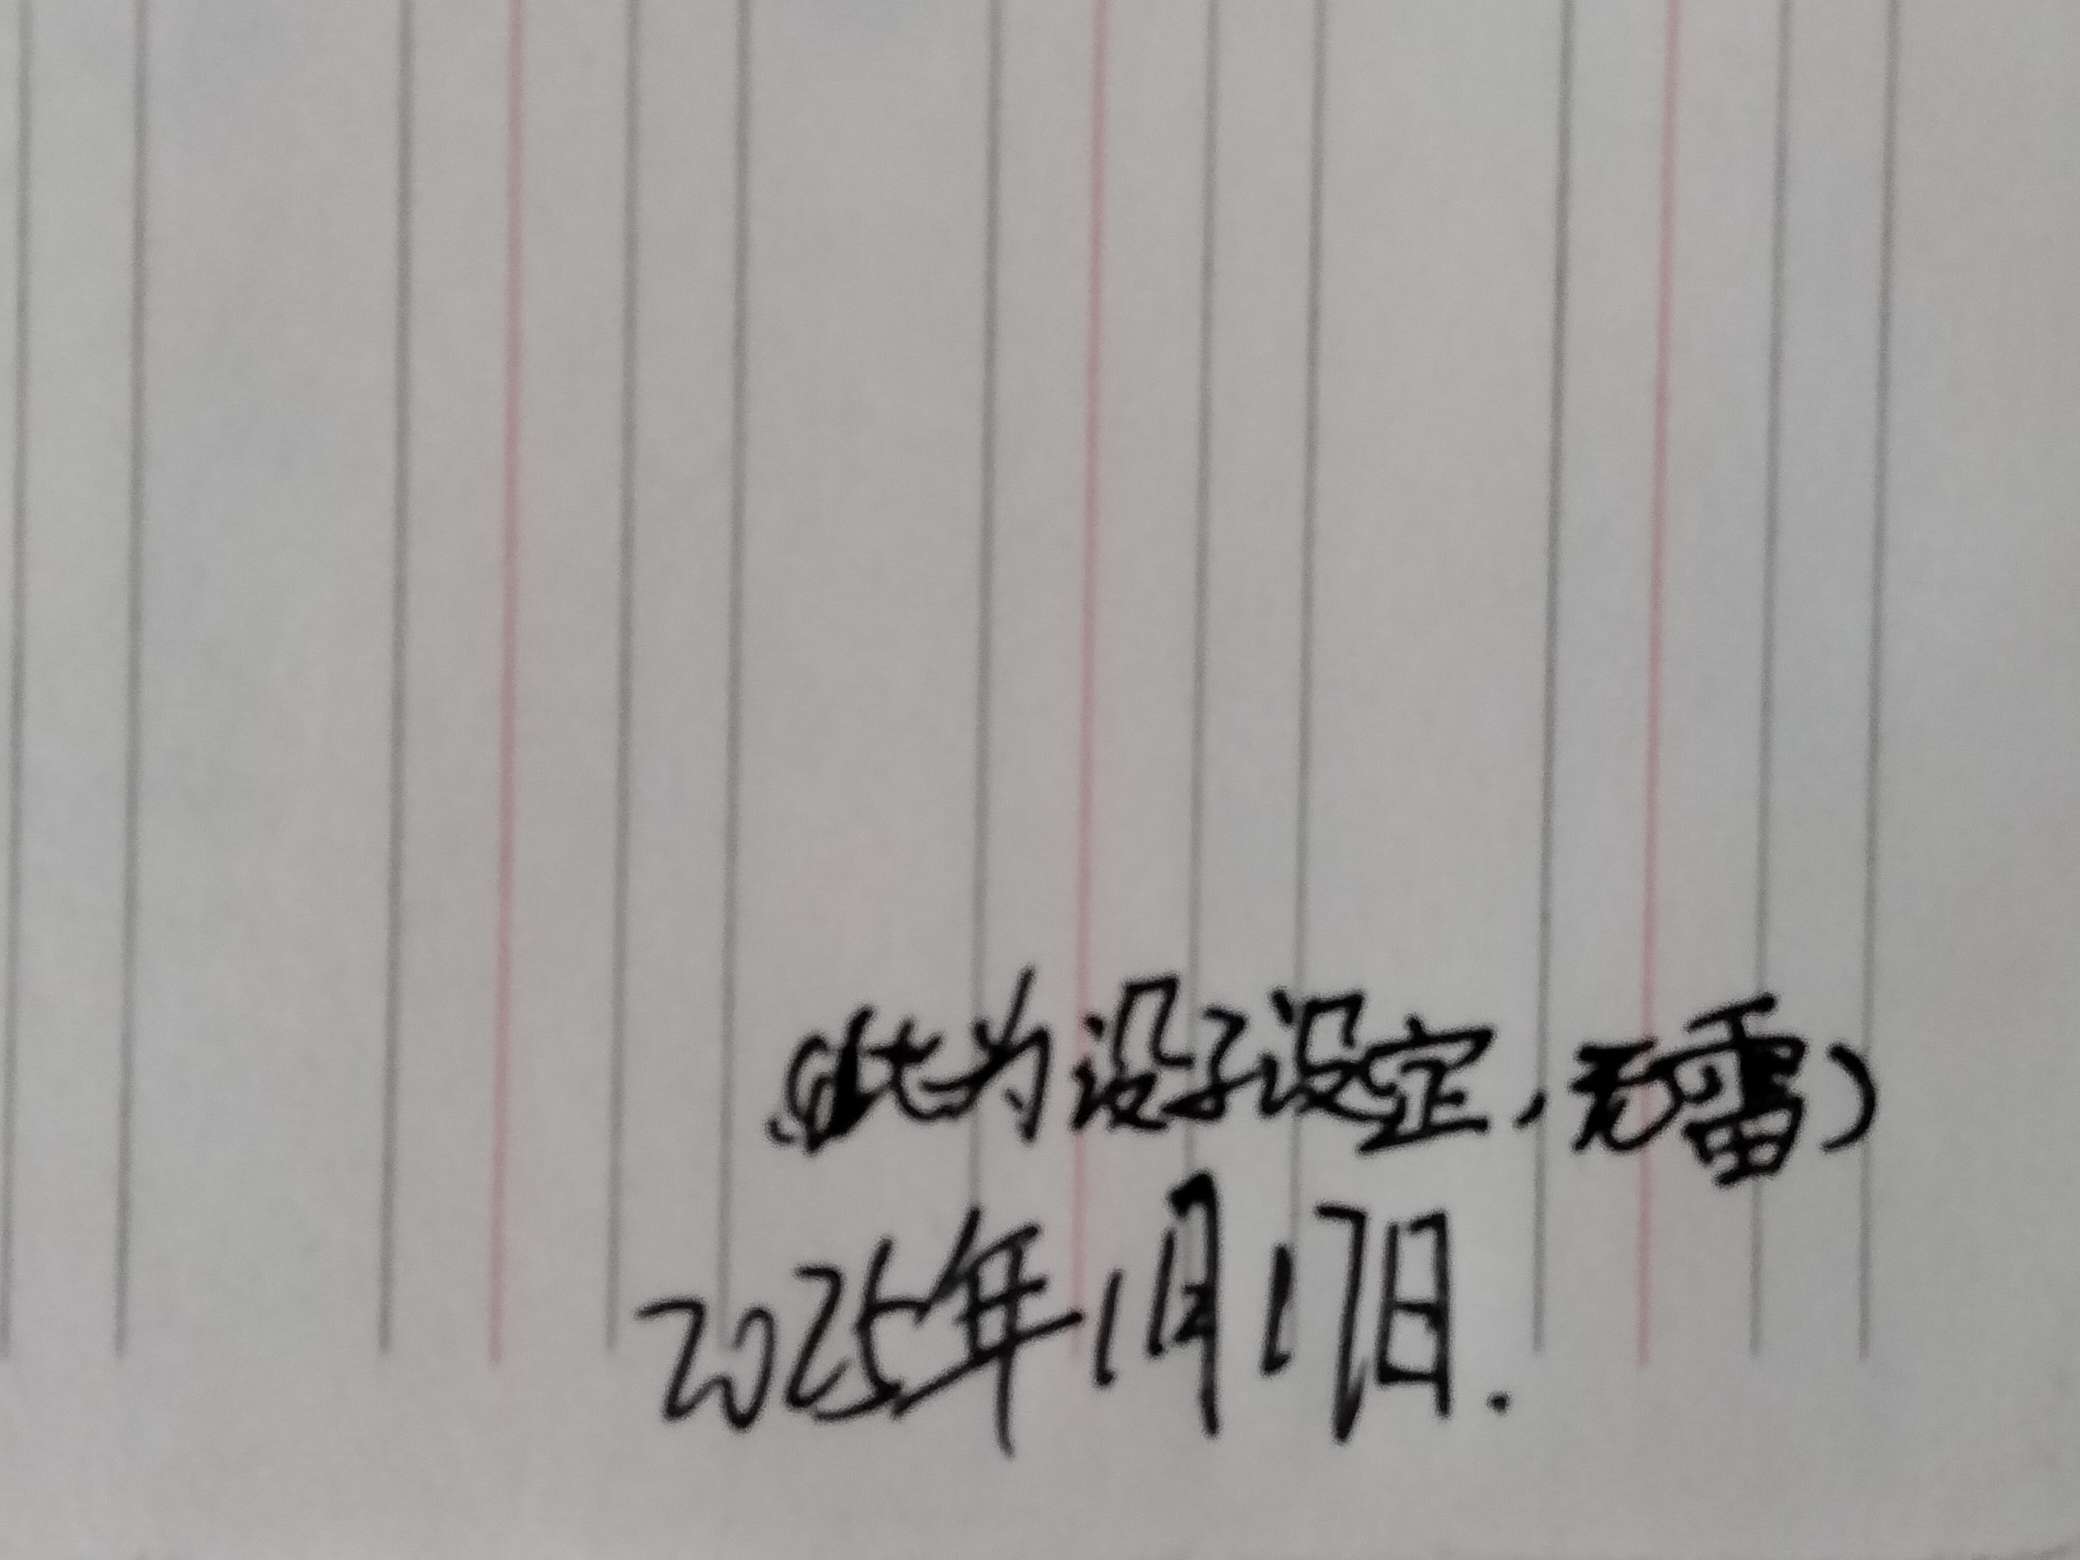 (此为设子设定,无雷)
2025年1月17日.